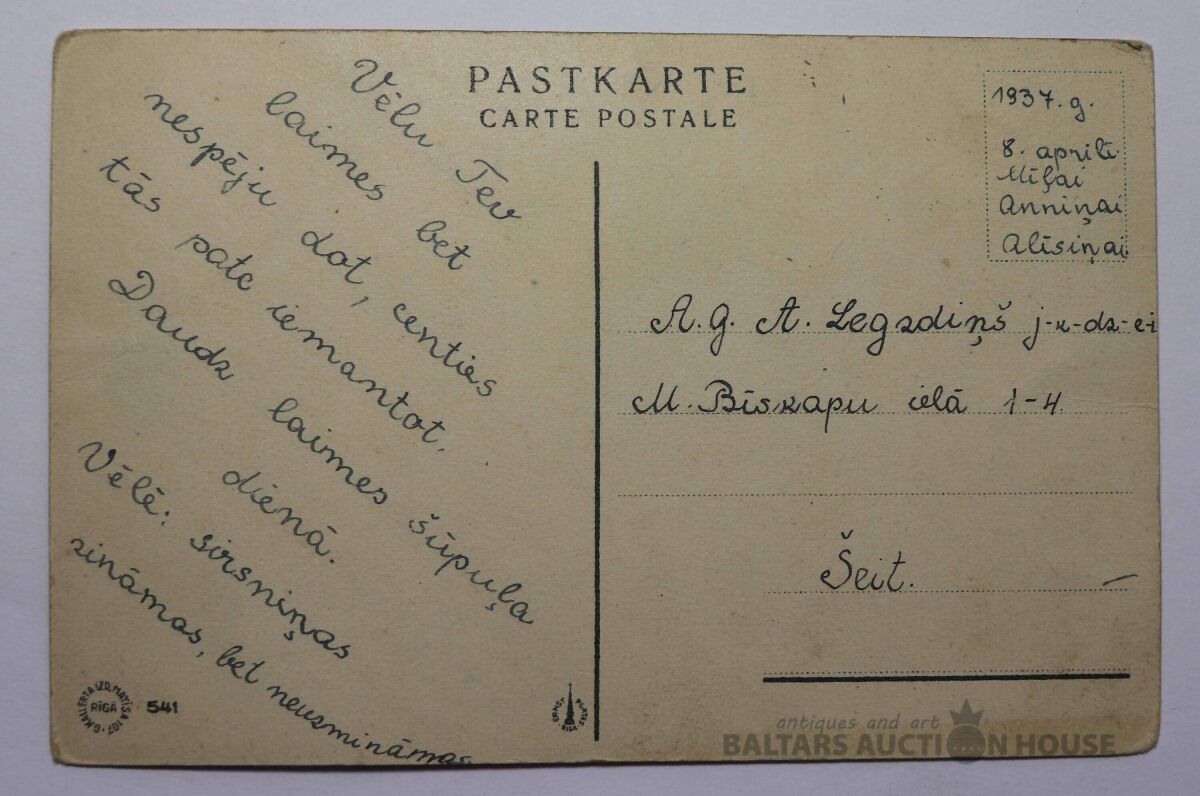 PASTKARTE
CARTE POSTALE
Vēlu Tev
laimes bet
nespēju dot, centies
tās pate iemantot.
Daudz laimes šūpuļa
dienā.
Vēlē: sirsniņas
zināmas, bet neuzmināmas
1937. g.
8. aprīlī.
Mīļai
Anniņai
Alīsiņai
A. G. A. Legzdiņš j-k-dz-e-i
M. Bīskapu ielā 1-4.
Šeit.
G. KALLERTA IZD. MATĪSA 107
RĪGĀ
541
ERNST PLATES RIGA
antiques and art
BALTARS AUCTION HOUSE